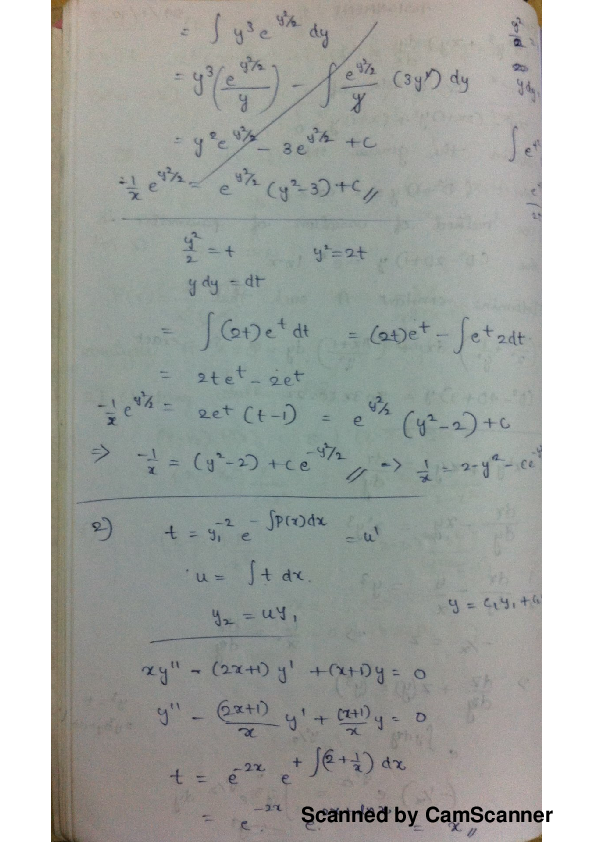 = ∫ y³ e^{y²/2} dy
= y³ (e^{y²/2}/y) − ∫ e^{y²/2}/y (3y²) dy
= y² e^{y²/2} − 3e^{y²/2} + c
-1/x e^{y²/2} = e^{y²/2} (y²−3) + c //
y²/2 = t y² = 2t
y dy = dt
= ∫ (2t) e^t dt = (2t)e^t − ∫ e^t 2dt
= 2te^t − 2e^t
-1/x e^{y²/2} = 2e^t (t−1) = e^{y²/2} (y²−2) + c
⇒ -1/x = (y²−2) + c e^{-y²/2} // → 1/x = 2−y² − ce^{-y
2) t = y₁^{-2} e^{-∫P(x)dx} = u'
u = ∫ t dx.
y₂ = uy₁ y = c₁y₁ +
xy'' − (2x+1) y' + (x+1)y = 0
y'' − (2x+1)/x y' + (x+1)/x y = 0
t = e^{-2x} e^{+∫(2+1/x) dx}
= e^{-2x} = x //
Scanned by CamScanner